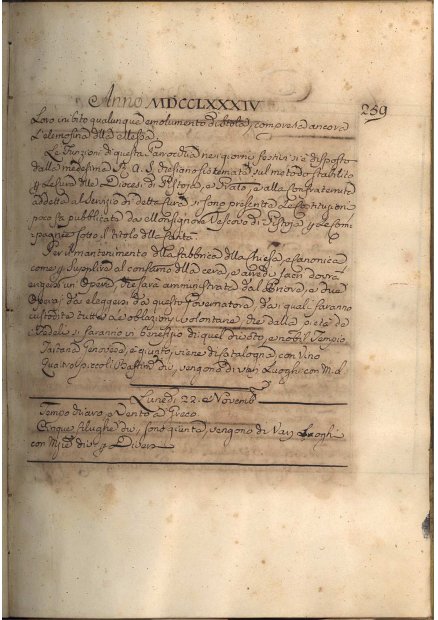 Anno MDCCLXXXIV
259
Loro inibito qualunque emolumento di stola, compresa ancora
L'elemosina della Messa.
Le Funzioni di questa Parocchia nei giorni festivi si è disposto
dalla medesima R. A. S. che siano sistemate sul metodo stabilito
per le Cure della Diocesi di Pistoja, e Prato, e alla Confraternita
addetta al servizio di detta Cura si sono presentate le Istituzioni
poco fa pubblicate da Monsignore Vescovo di Pistoja per le Com
pagnie sotto il titolo della Carità
Per il mantenimento della Fabbrica della Chiesa, e Canonica
come per supplire al consumo della cera, e arredi sacri dovrà
erigersi un Opera, che sarà amministrata dal Priore, e due
Operai da eleggersi da questo Governatore, da i quali saranno
custodite tutte le oblazioni volontarie, che dalla pietà de
Fedeli si faranno in benefizio di quel divoto, e nobil Tempio
Tartana Genovese, è quinto, viene di Catalogna, con Vino
Quattro piccoli Bastim. di, vengono di vari Luoghi con M. d.
Lunedì 22. Novemb.
Tempo chiaro, e Vento a Greco
Cinque filughe di, sono quinta, vengono di Varj Luoghi
con di e Diversi